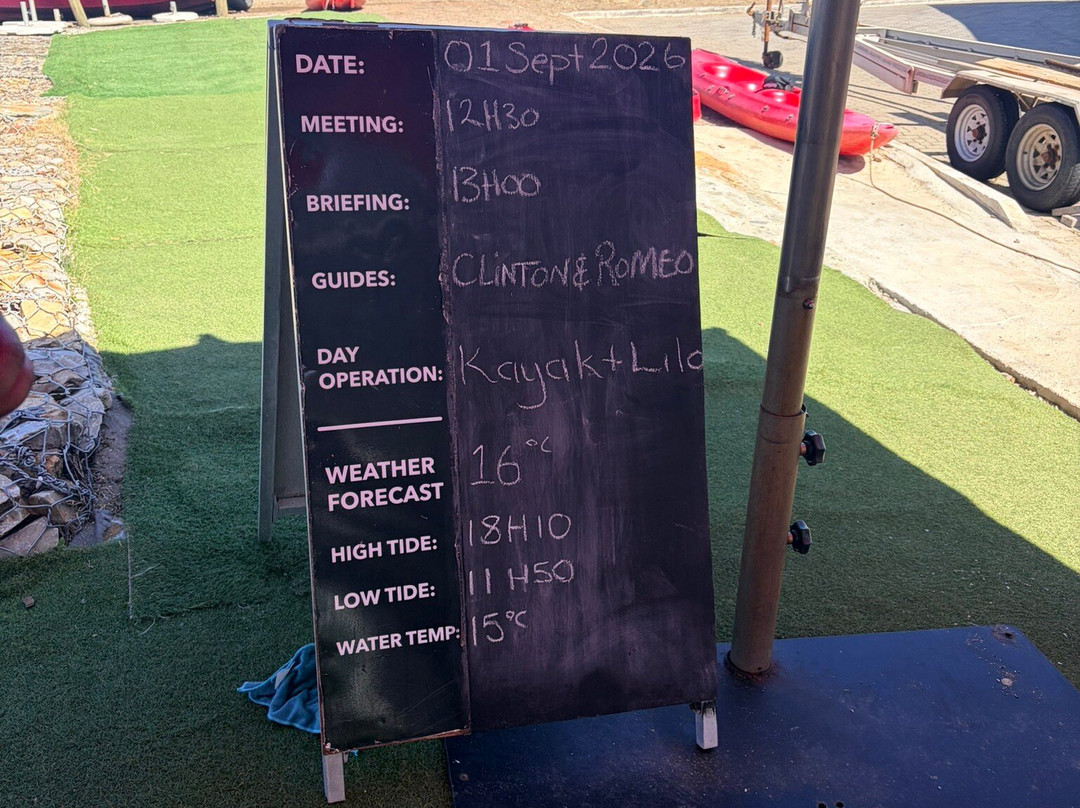 DATE: 01 Sept 2026
MEETING: 12H30
BRIEFING: 13H00
GUIDES: CLINTON & ROMEO
DAY
OPERATION: Kayak + Lilo
WEATHER
FORECAST 16°C
HIGH TIDE: 18H10
LOW TIDE: 11H50
WATER TEMP: 15°C